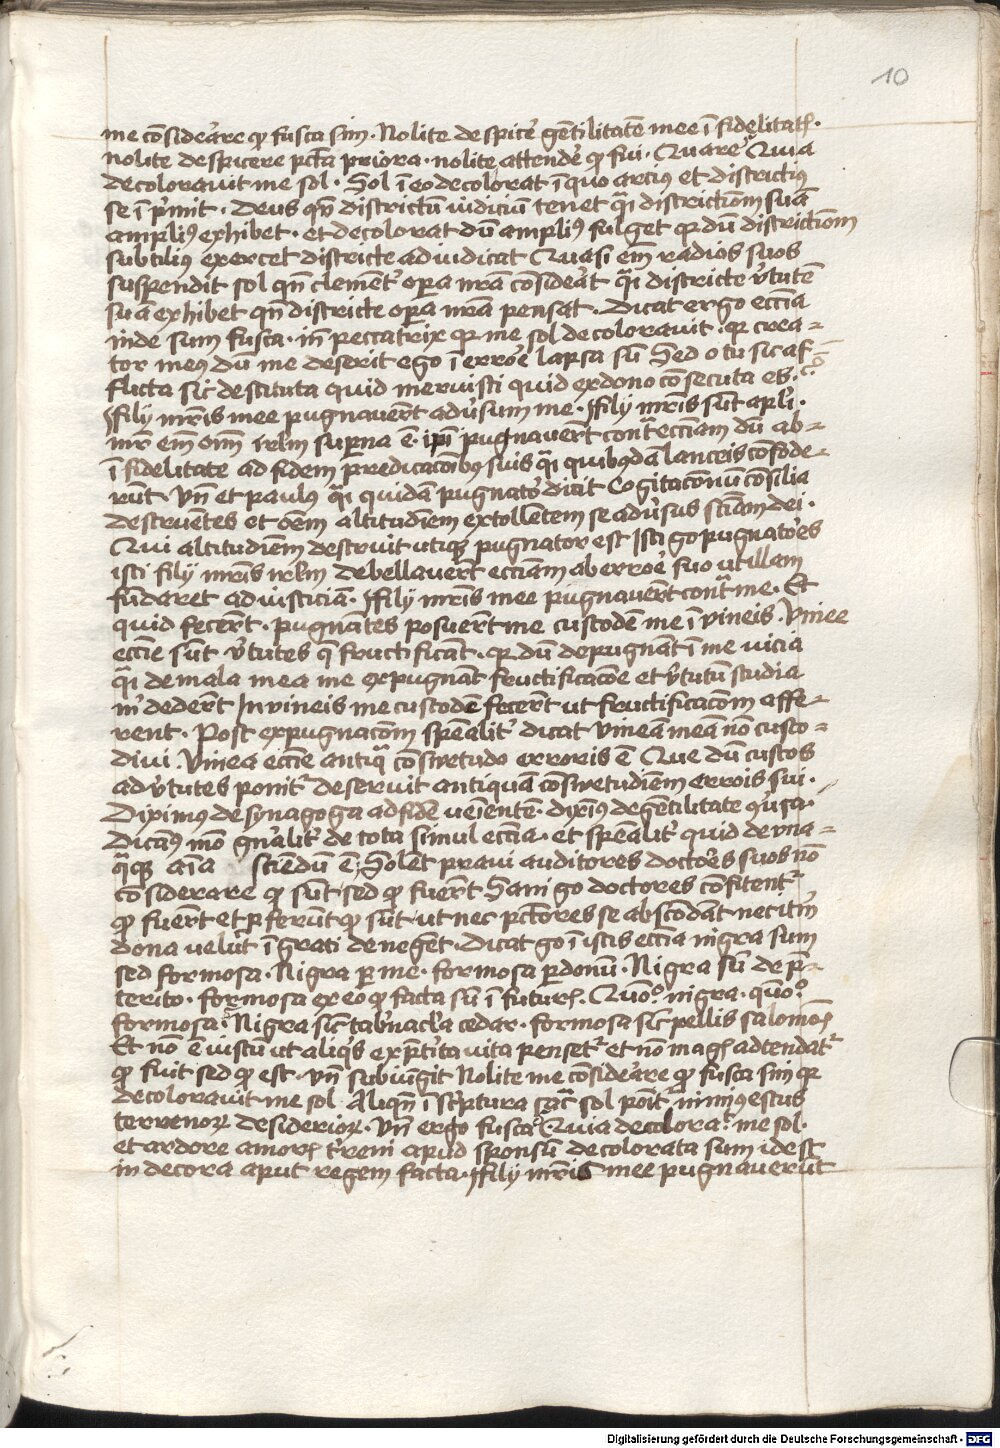 10
me cōsideare qꝫ fusca sim · Nolite despice gētilitatē mee ī fidelitatꝭ ·
nolite despicere pctā priora · nolite attendē qꝫ fui · Quare Quia
decolorauit me sol · Sol ī eo decolorat ī quo artius et districtius
se ī pͥmit · deus qn̄ districtū iudiciū tenet qͣi districtiōm suā
ampliꝰ exhibet · et decolorat dū ampliꝰ fulget qꝛ dū districtiōm
subtilius exercet districte adiudicat Quasi em̄ radios suos
suspendit sol qn̄ clementͬ opa nr̄a cōsideat qͣi districte v̓tutē
suā exhibet qn̄ districte opa nr̄a pensat · dicat ergo eccīa
inde sum fusca · in̄ peccatrix qꝛ me sol decolorauit · qꝛ crea=
tor meus dū me deserit ego ī errore lapsa sū Sed o tu sic af=
flicta sic destituta quid meruisti quid ex dono cōsecuta es ·
ffilij mr̄is mee pugnauert aduͥsum me · ffilij mr̄is sūt apl̄i ·
mr̄ em̄ om̄ irlm̄ superna ē · ipī pugnauert contͣ ecciam dū ab=
ī fidelitate ad fidem predicacōībꝰ suis qͣi quibusdā lanceis cōfode=
rūt · vn̄ et paulꝰ qͣi quidā pugnatoͬ dicit Cogitacōnū cōsilia
destruētes et oēm altitudīem extollētem se aduͥsus sciām dei ·
Qui altitudīem destruit utiqꝫ pugnator est Isti go pugnatoes
isti filij mr̄is irlm̄ debellauert ecciam ab erroe suo ut illam
fūdaret ad iusticiā · ffilij mr̄is mee pugnauert contͣ me · Et
quid fecert · pugnātes posuert me custodem me ī vineis · vinee
eccīe sūt v̓tutes q̄ fructificāt · qꝛ dū depugnāt ī me uicia
qͣi de mala mea me expugnāt fructificacōe et v̓tutū studia
mͥ dedert In vineis me custodē fecert ut fructificacōm affe=
rent · Post expugnacōm spēalitͬ dicat vineā meā nō custo=
diui · vinea eccīe antiqͣ cōswetudo erroris ē Que dū custos
ad v̓tutes ponitͬ deseruit antiquā cōswetudīem errois sui ·
Diximꝰ de synagoga ad fidē ueīentē · dixīꝰ de gētilitate qͥusa ·
dicāꝰ mō gn̄alitͬ de tota simul eccīa · et spēalitͬ quid de vna=
qͣqꝫ aīa sciēdū ē Solēt praui auditores doctoes suos nō
cōsiderare qꝫ sūt sed qꝫ fuert Sani go doctores cōfitentͬ
qꝫ fuert et p̄ferūt qꝫ sūt ut nec pctōres se abscōdāt nec itm̄
dona uelut īgrati denegēt · dicat go ī istis eccīa nigra sum
sed formosa · Nigra per me · formosa per donū · Nigra sū de p̄=
terito · formosa ex eo qꝫ facta sū ī futurꝭ · Quōͦ nigra · quōͦ
formosa · Nigra sic̄ tab̓nacl̄a cedar · formosa sic̄ pellis salomōꝭ
Et nō ē iustū ut aliqͥs ex p̄tita vita pensetͬ et nō magꝭ adtendatͬ
qꝫ fuit sed qꝫ est · vn̄ subiūgit Nolite me cōsideare qꝫ fusca sim qꝛ
decolorauit me sol Aliqn̄ ī scͥptura sac̄ sol pōit nimiꝰ estus
terrenoꝝ desiderioꝝ · vn̄ ergo fusca Quia decolorat me sol ·
et ardore amorꝭ t̓reni apud sponsū decolorata sum id est
in decora aput regem facta · ffilij mr̄is mee pugnauerūt
Digitalisierung gefördert durch die Deutsche Forschungsgemeinschaft - DFG